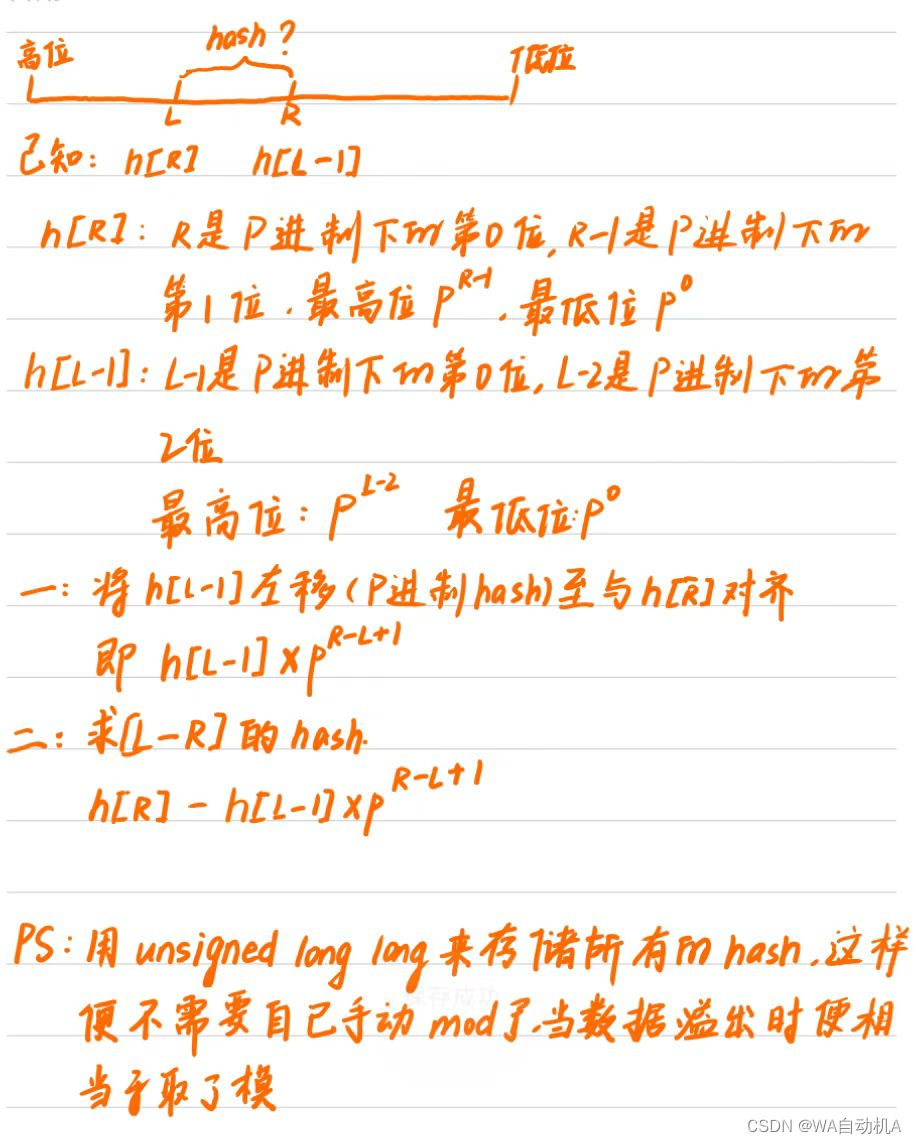 hash?
高位
低位
L R
已知: h[R] h[L-1]
h[R]: R是P进制下的第0位, R-1是P进制下的
第1位.最高位 P^R-1 .最低位 P^0
h[L-1]: L-1是P进制下的第0位, L-2是P进制下的第
2位
最高位: P^L-2 最低位:P^0
一: 将h[L-1]左移(P进制hash)至与h[R]对齐
即 h[L-1]×P^R-L+1
二: 求[L-R]的hash.
h[R] - h[L-1]×P^R-L+1
PS: 用 unsigned long long 来存储所有的hash.这样
便不需要自己手动 mod了.当数据溢出时便相
当于取了模
保存成功
CSDN @WA自动机A